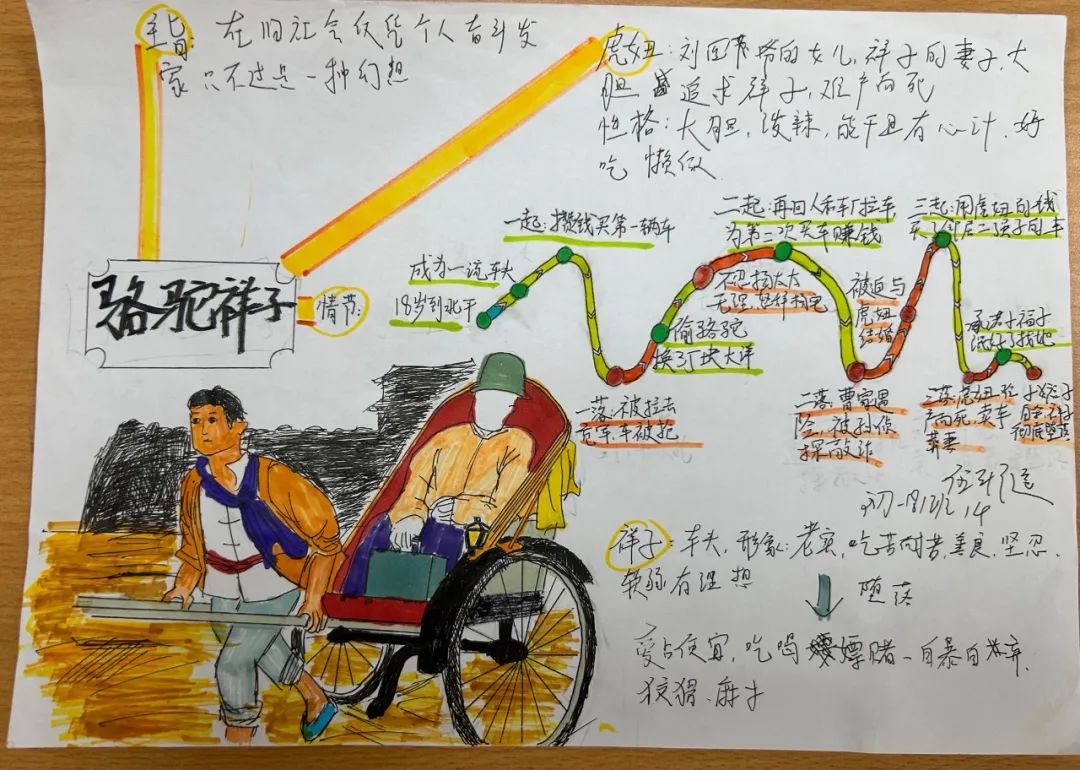 主旨：在旧社会仅凭个人奋斗发
家只不过是一种幻想
虎妞：刘四爷的女儿，祥子的妻子，大
胆 追求祥子，难产而死
性格：大胆，泼辣，能干且有心计，好
吃懒做
骆驼祥子
情节：
18岁到北平
成为一流车夫
一起：攒钱买第一辆车
一落：被拉去
车被抢
偷骆驼
换了块大洋
二起：再回人和车厂拉车
为第二次买车赚钱
不码扬太太
无理
二落：曹家遇
险，被孙侦
探敲诈
被迫与
虎妞
结婚
三起：用虎妞的钱
买了邻居二强子的车
三落：虎妞难
产而死，卖车
葬妻
承诺小福子
混好了找她
小福子
自杀祥子
彻底堕落
初一8班 14
祥子：车夫，形象：老实，吃苦耐劳，善良，坚忍，
软弱有理想
堕落
爱占便宜，吃喝嫖赌，自暴自弃，
狡猾、麻木